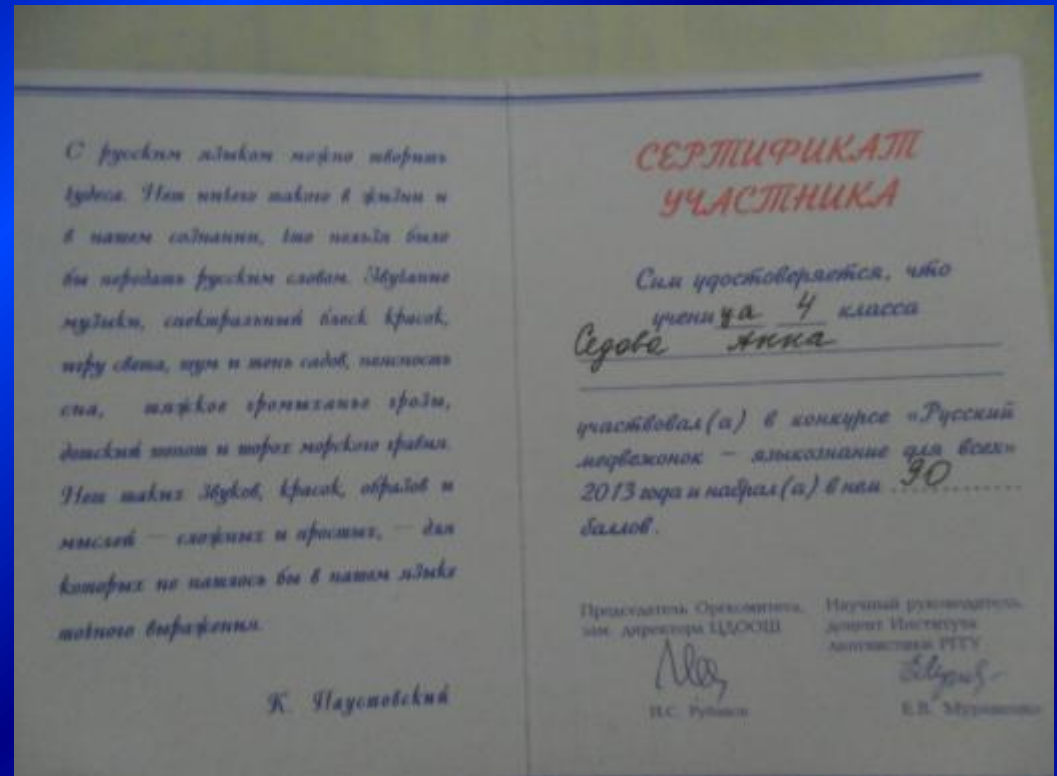 С русским языком можно творить
чудеса. Нет ничего такого в жизни и
в нашем сознании, что нельзя было
бы передать русским словом. Звучание
музыки, спектральный блеск красок,
игру света, шум и тень садов, неясность
сна, тяжкое громыханье грозы,
детский шепот и шорох морского гравия.
Нет таких звуков, красок, образов и
мыслей — сложных и простых, — для
которых не нашлось бы в нашем языке
точного выражения.
К. Паустовский
СЕРТИФИКАТ
УЧАСТНИКА
Сим удостоверяется, что
ученица 4 класса
Седова Анна
участвовал(а) в конкурсе «Русский
медвежонок – языкознание для всех»
2013 года и набрал(а) в нем 90
баллов.
Председатель Оргкомитета,
зам. директора ЦДООШ
И.С. Рубанов
Научный руководитель,
доцент Института
лингвистики РГГУ
Е.В. Муравенко